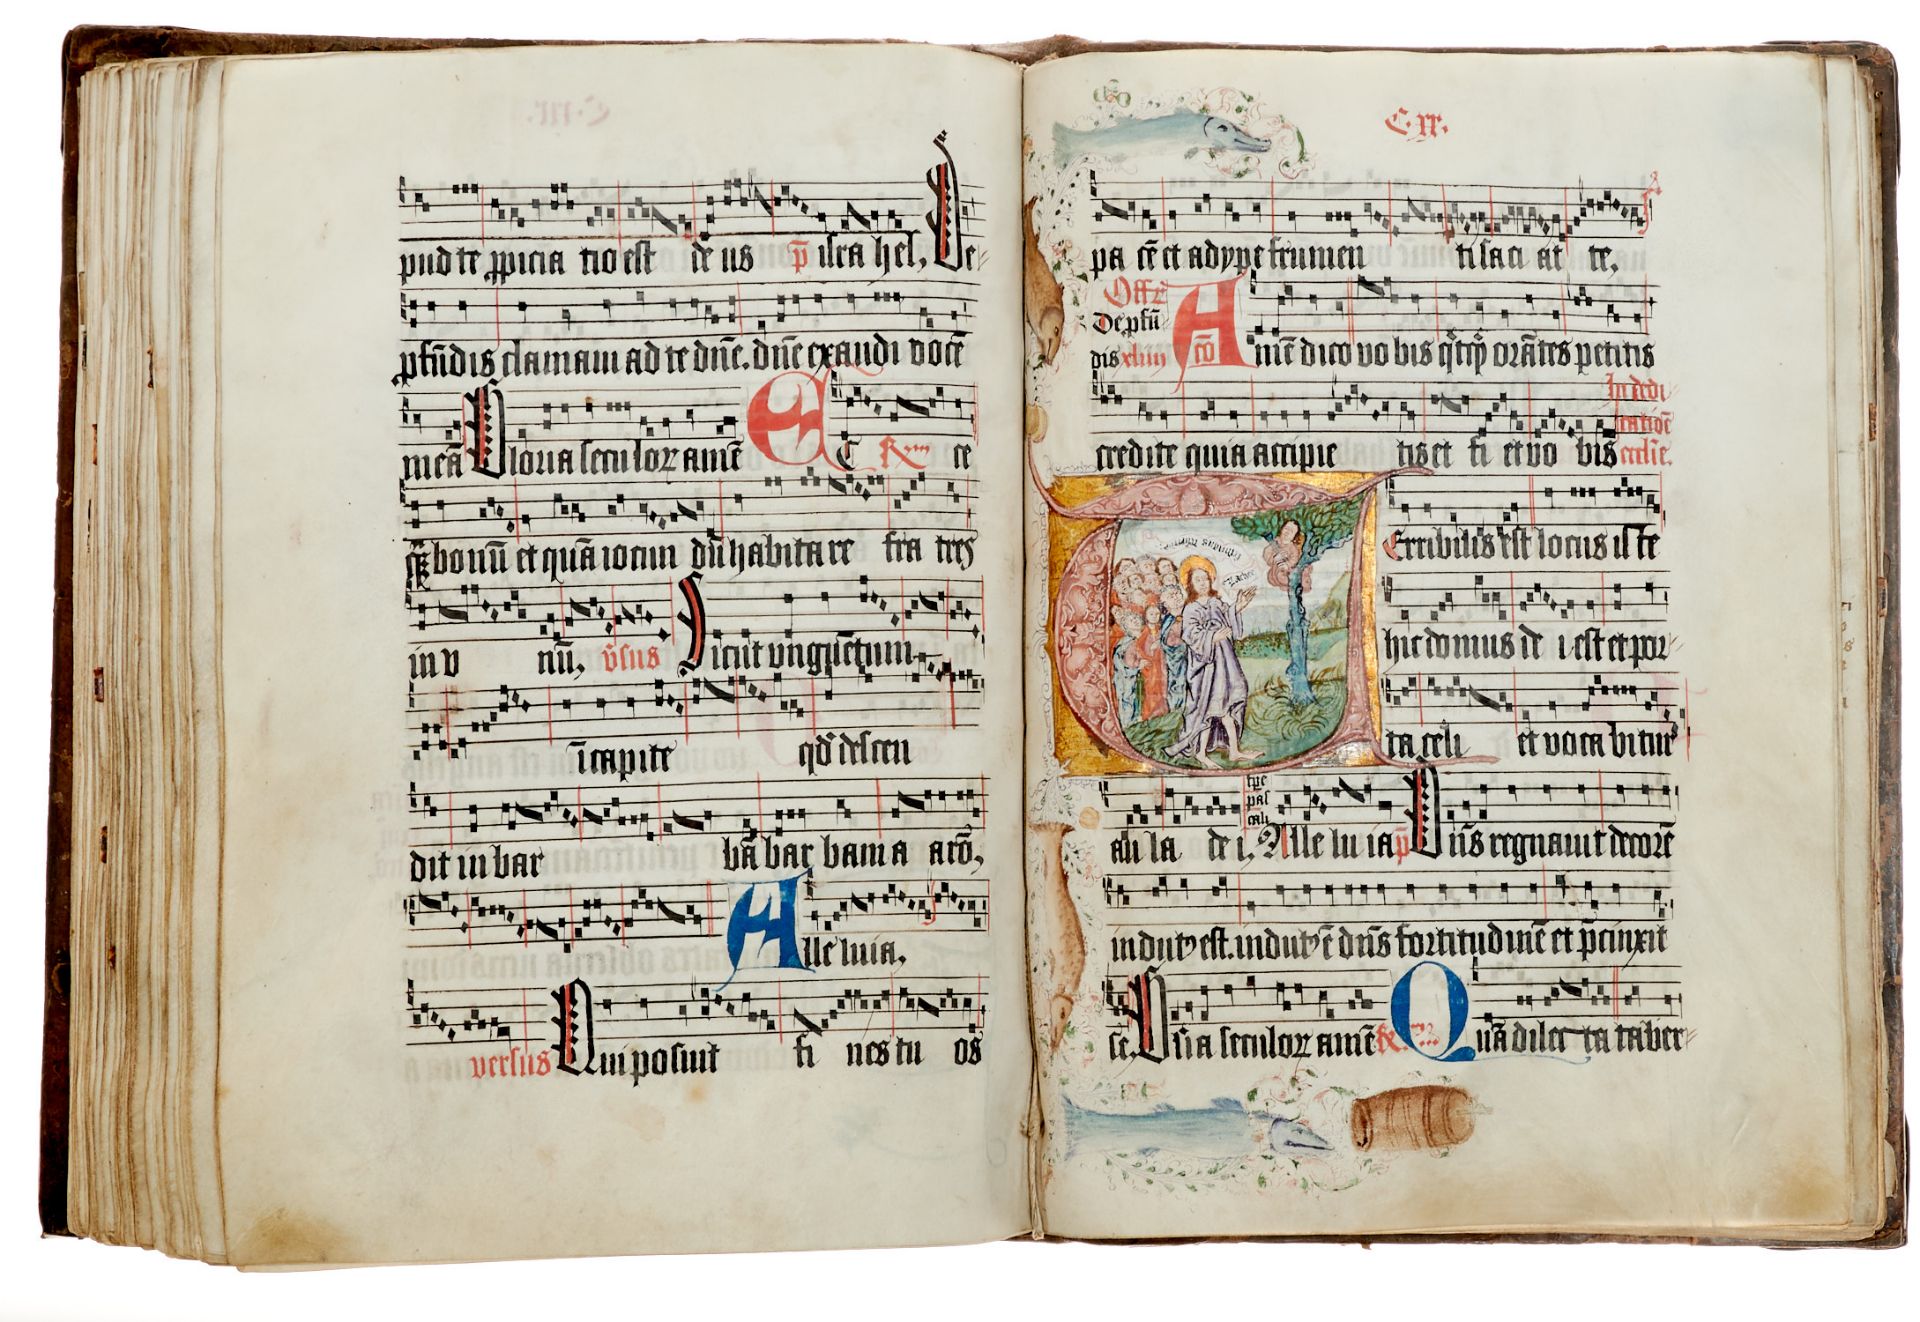 pud te ꝓpicia tio est de us p̄ isra hel, De-
pfūdis clamaui ad te dn̄e. dn̄e exaudi vocē
meā Gloria seculoꝝ amē E C ce
bonū et quā iocun dū habitare fra tres
in v nū, v̄sus Sicut vnguētum
ī capite qd̄ descen
dit in bar bā bar bam a arō,
Alle luia,
versus Qui posuit fi nes tu os
C.xx.
pa cē et adype frumen ti saci at te,
Off
De pfū
dis xliiii
Amē dico vo bis orātes petitis
In dedi
catiōe
ecclīe.
credite quia accipie tis et fi et vo bis
Terribilis est locus is te
hic domus de i est et por-
ta celi et voca bitur
tpe
pas
cali
au la de i, Alle lu ia p̄ Dn̄s regnauit decorē
indutꝰ est. indutꝰ ē dn̄s fortitudinē et p̄cinxit
se, Gl'ia seculoꝝ amē Quā dilec ta taber-